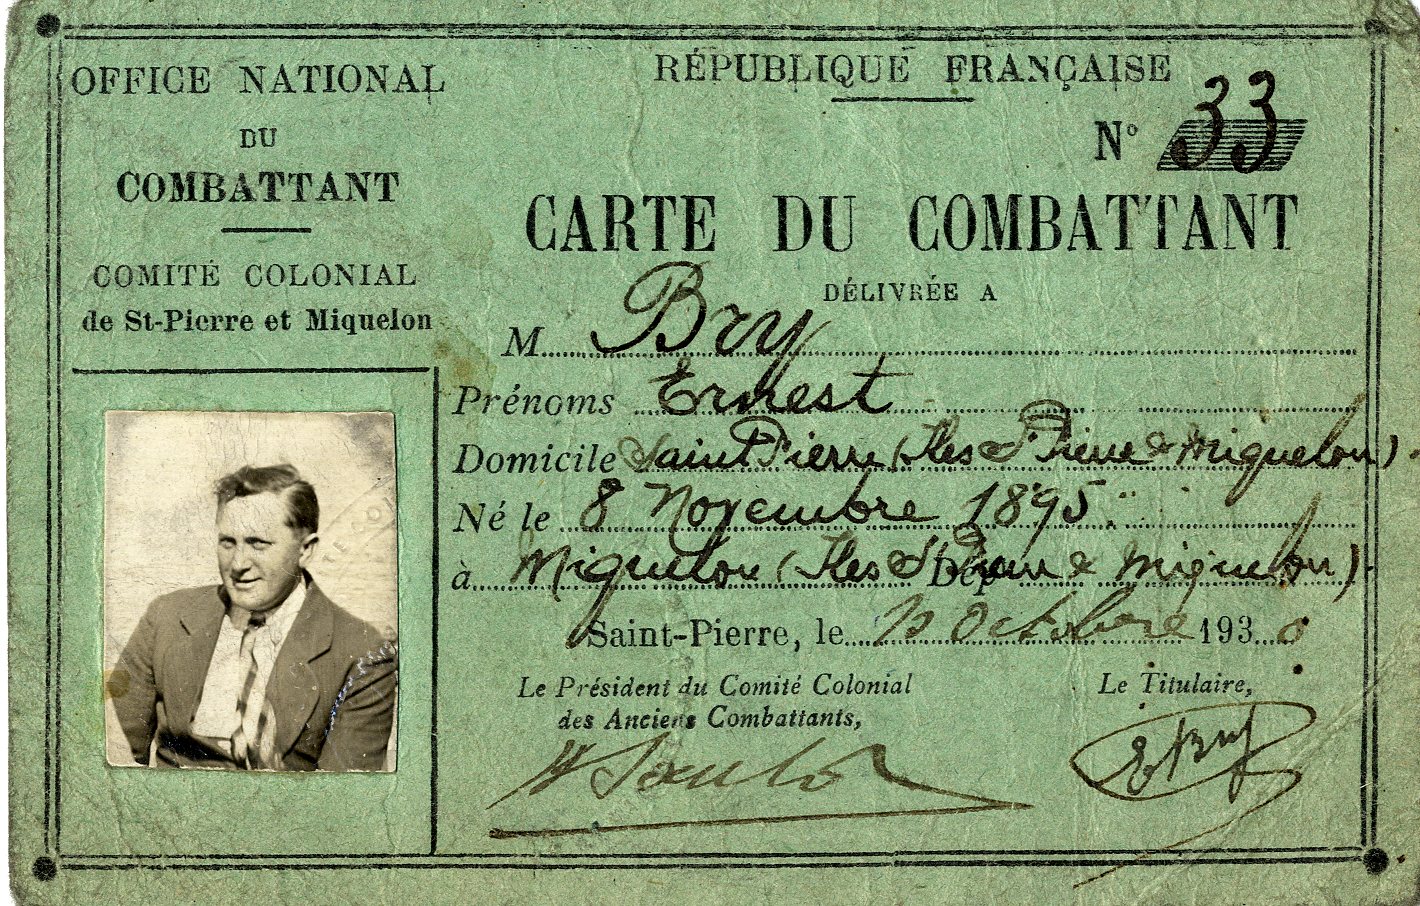 OFFICE NATIONAL
DU
COMBATTANT
COMITÉ COLONIAL
de St-Pierre et Miquelon
RÉPUBLIQUE FRANÇAISE
Nº 33
CARTE DU COMBATTANT
DÉLIVRÉE A
M Bry
Prénoms Ernest
Domicile Saint Pierre (Iles St Pierre & Miquelon).
Né le 8 Novembre 1895
à Miquelon (Iles St Pierre & Miquelon) Dép
Saint-Pierre, le Octobre 1930
Le Président du Comité Colonial
des Anciens Combattants,
Le Titulaire,
E Bry